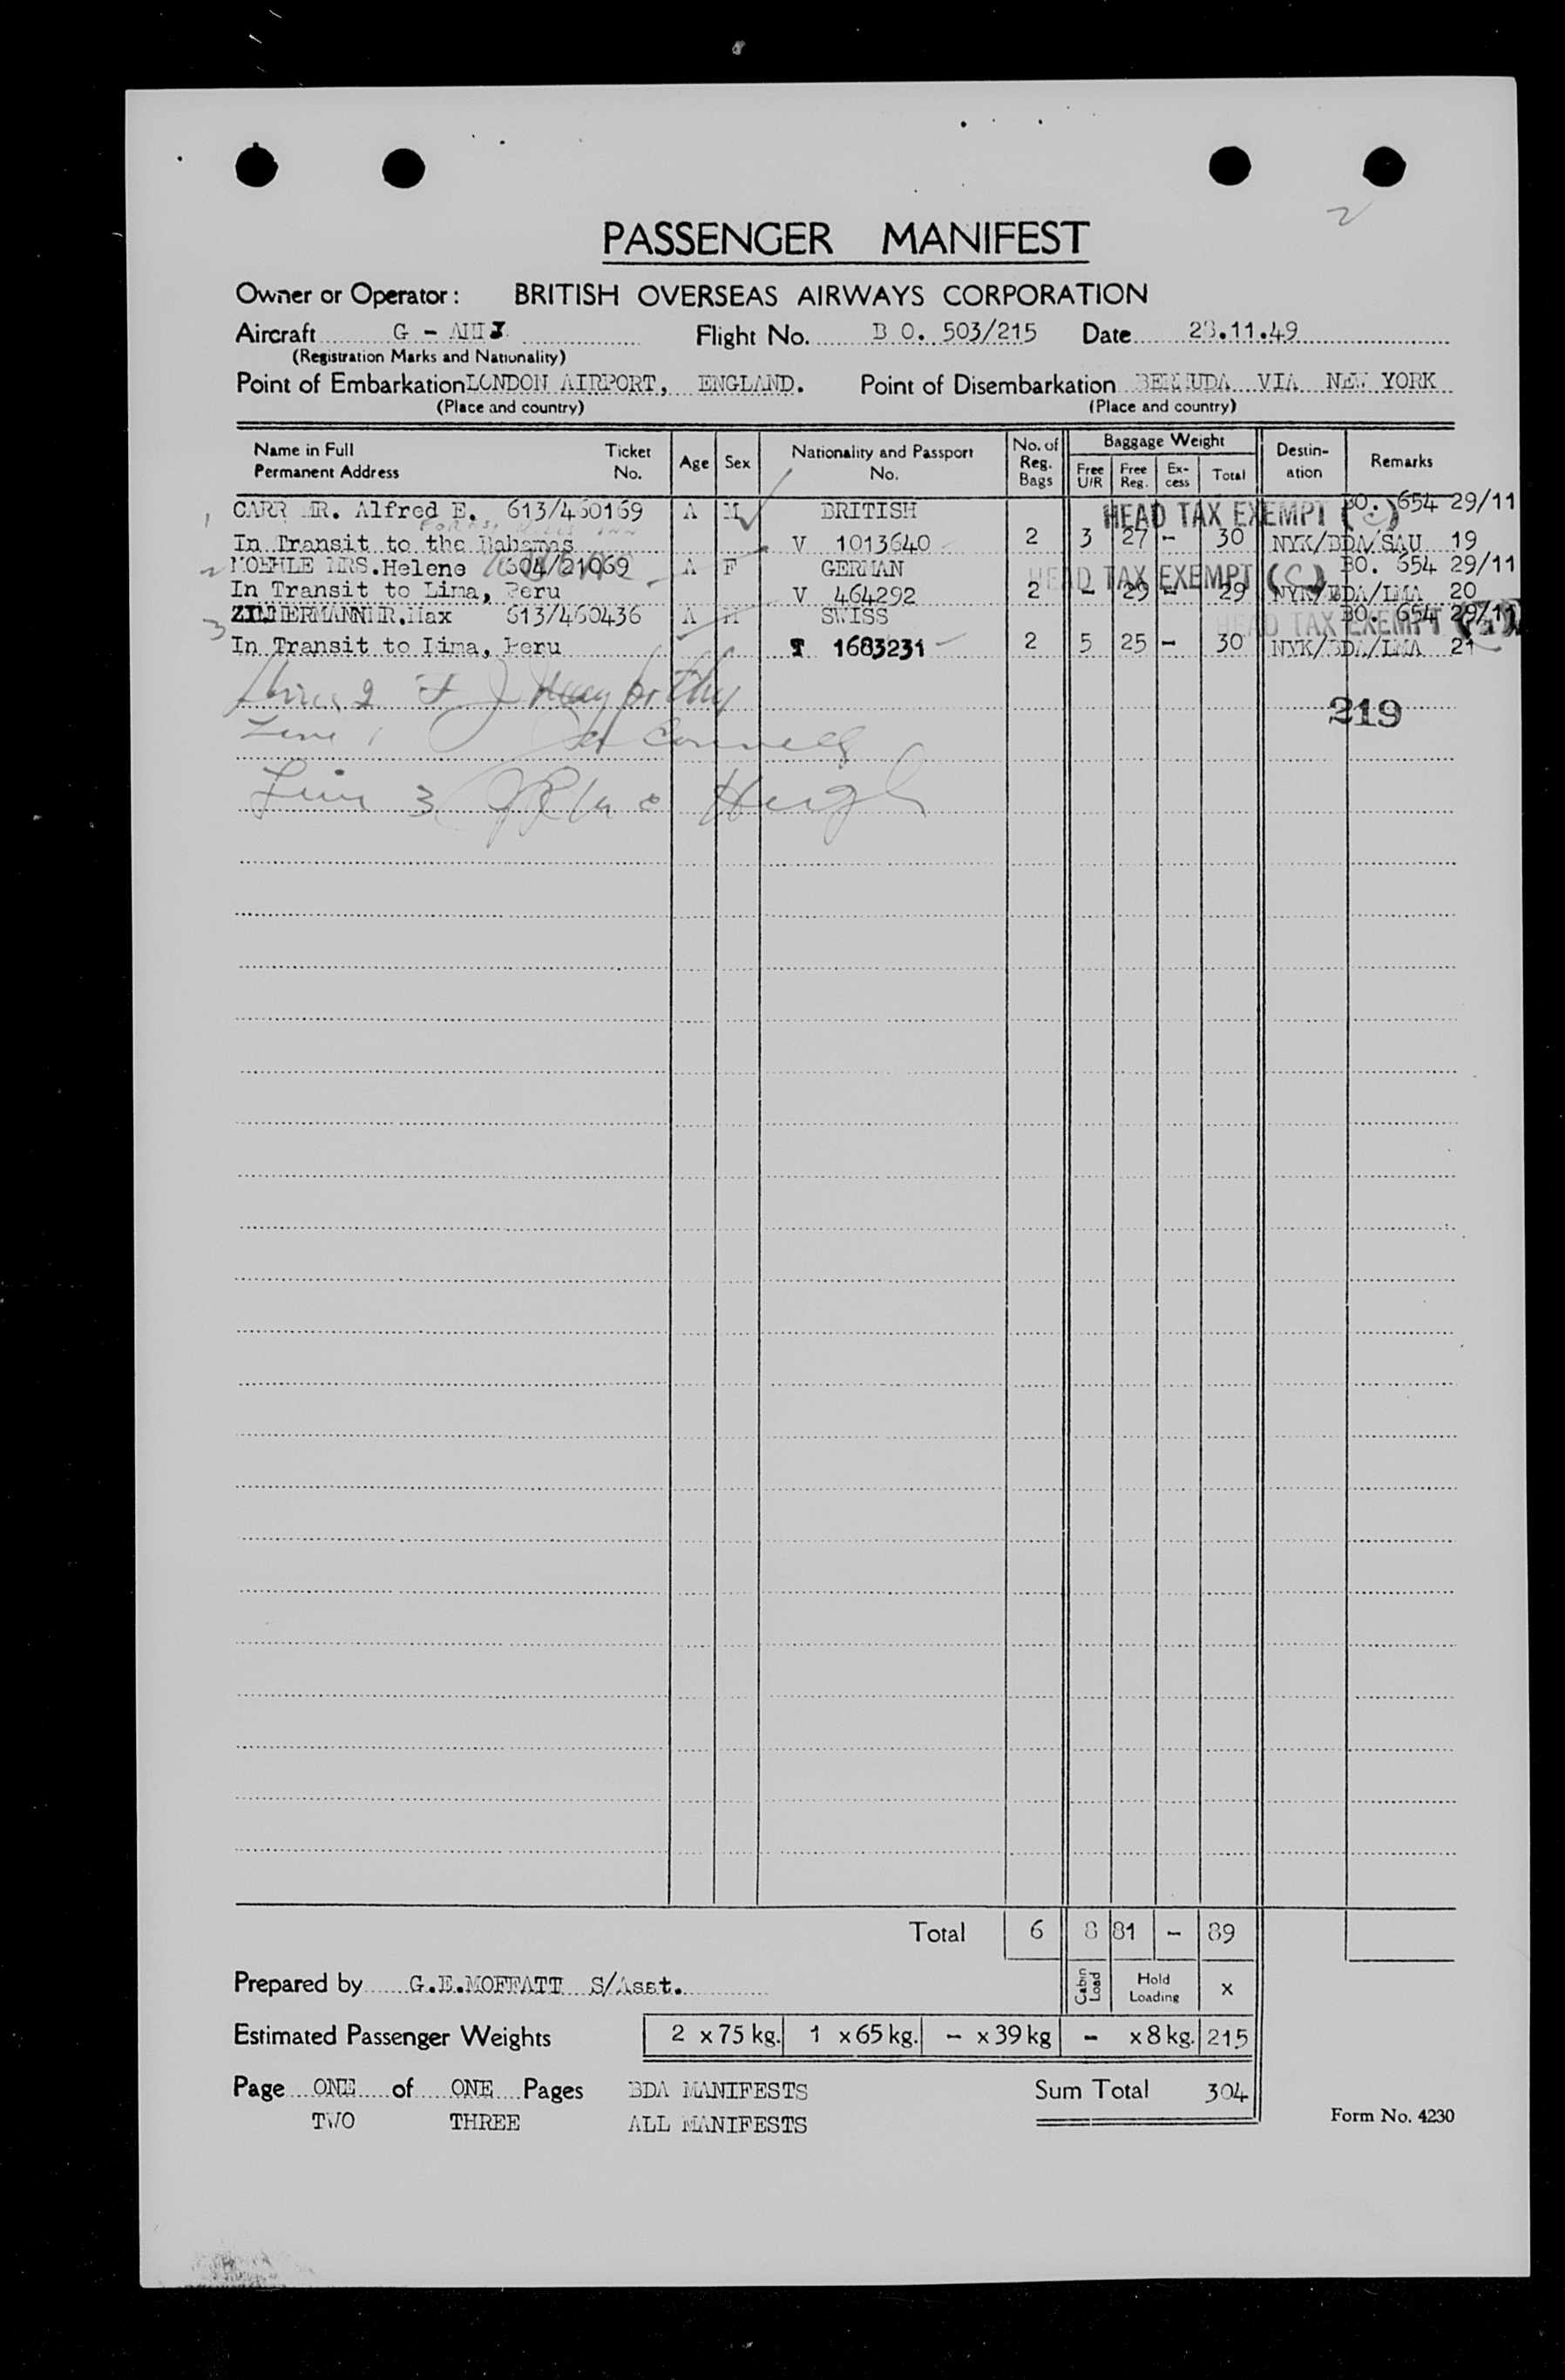 2
PASSENGER MANIFEST
Owner or Operator: BRITISH OVERSEAS AIRWAYS CORPORATION
Aircraft G - Flight No. B O. 503/215 Date 28.11.49
(Registration Marks and Nationality)
Point of Embarkation LONDON AIRPORT, ENGLAND. Point of Disembarkation BERMUDA VIA NEW YORK
(Place and country) (Place and country)
Name in Full Permanent Address Ticket No. Age Sex Nationality and Passport No. No. of Reg. Bags Baggage Weight Free U/R Free Reg. Ex-cess Total Destin-ation Remarks
1 CARR MR. Alfred E. 613/460169 A M BRITISH HEAD TAX EXEMPT (C) BO. 654 29/11
In Transit to the Bahamas V 1013640 2 3 27 - 30 NYK/BDA/SAU 19
2 MOEHLE MRS. Helene 604/21069 A F GERMAN HEAD TAX EXEMPT (C) BO. 654 29/11
In Transit to Lima, Peru V 464292 2 - 29 - 29 NYK/BDA/LMA 20
3 ZIMMERMANN MR. Max 613/460436 A M SWISS HEAD TAX EXEMPT BO. 654 29/11
In Transit to Lima, Peru T 1683231 2 5 25 - 30 NYK/BDA/LMA 21
219
Line 1
Line 3
Total 6 8 81 - 89
Prepared by G.E.MOFFATT S/Asst. Cabin Load Hold Loading X
Estimated Passenger Weights 2 x 75 kg. 1 x 65 kg. - x 39 kg - x 8 kg. 215
Page ONE of ONE Pages BDA MANIFESTS Sum Total 304
TWO THREE ALL MANIFESTS Form No. 4230